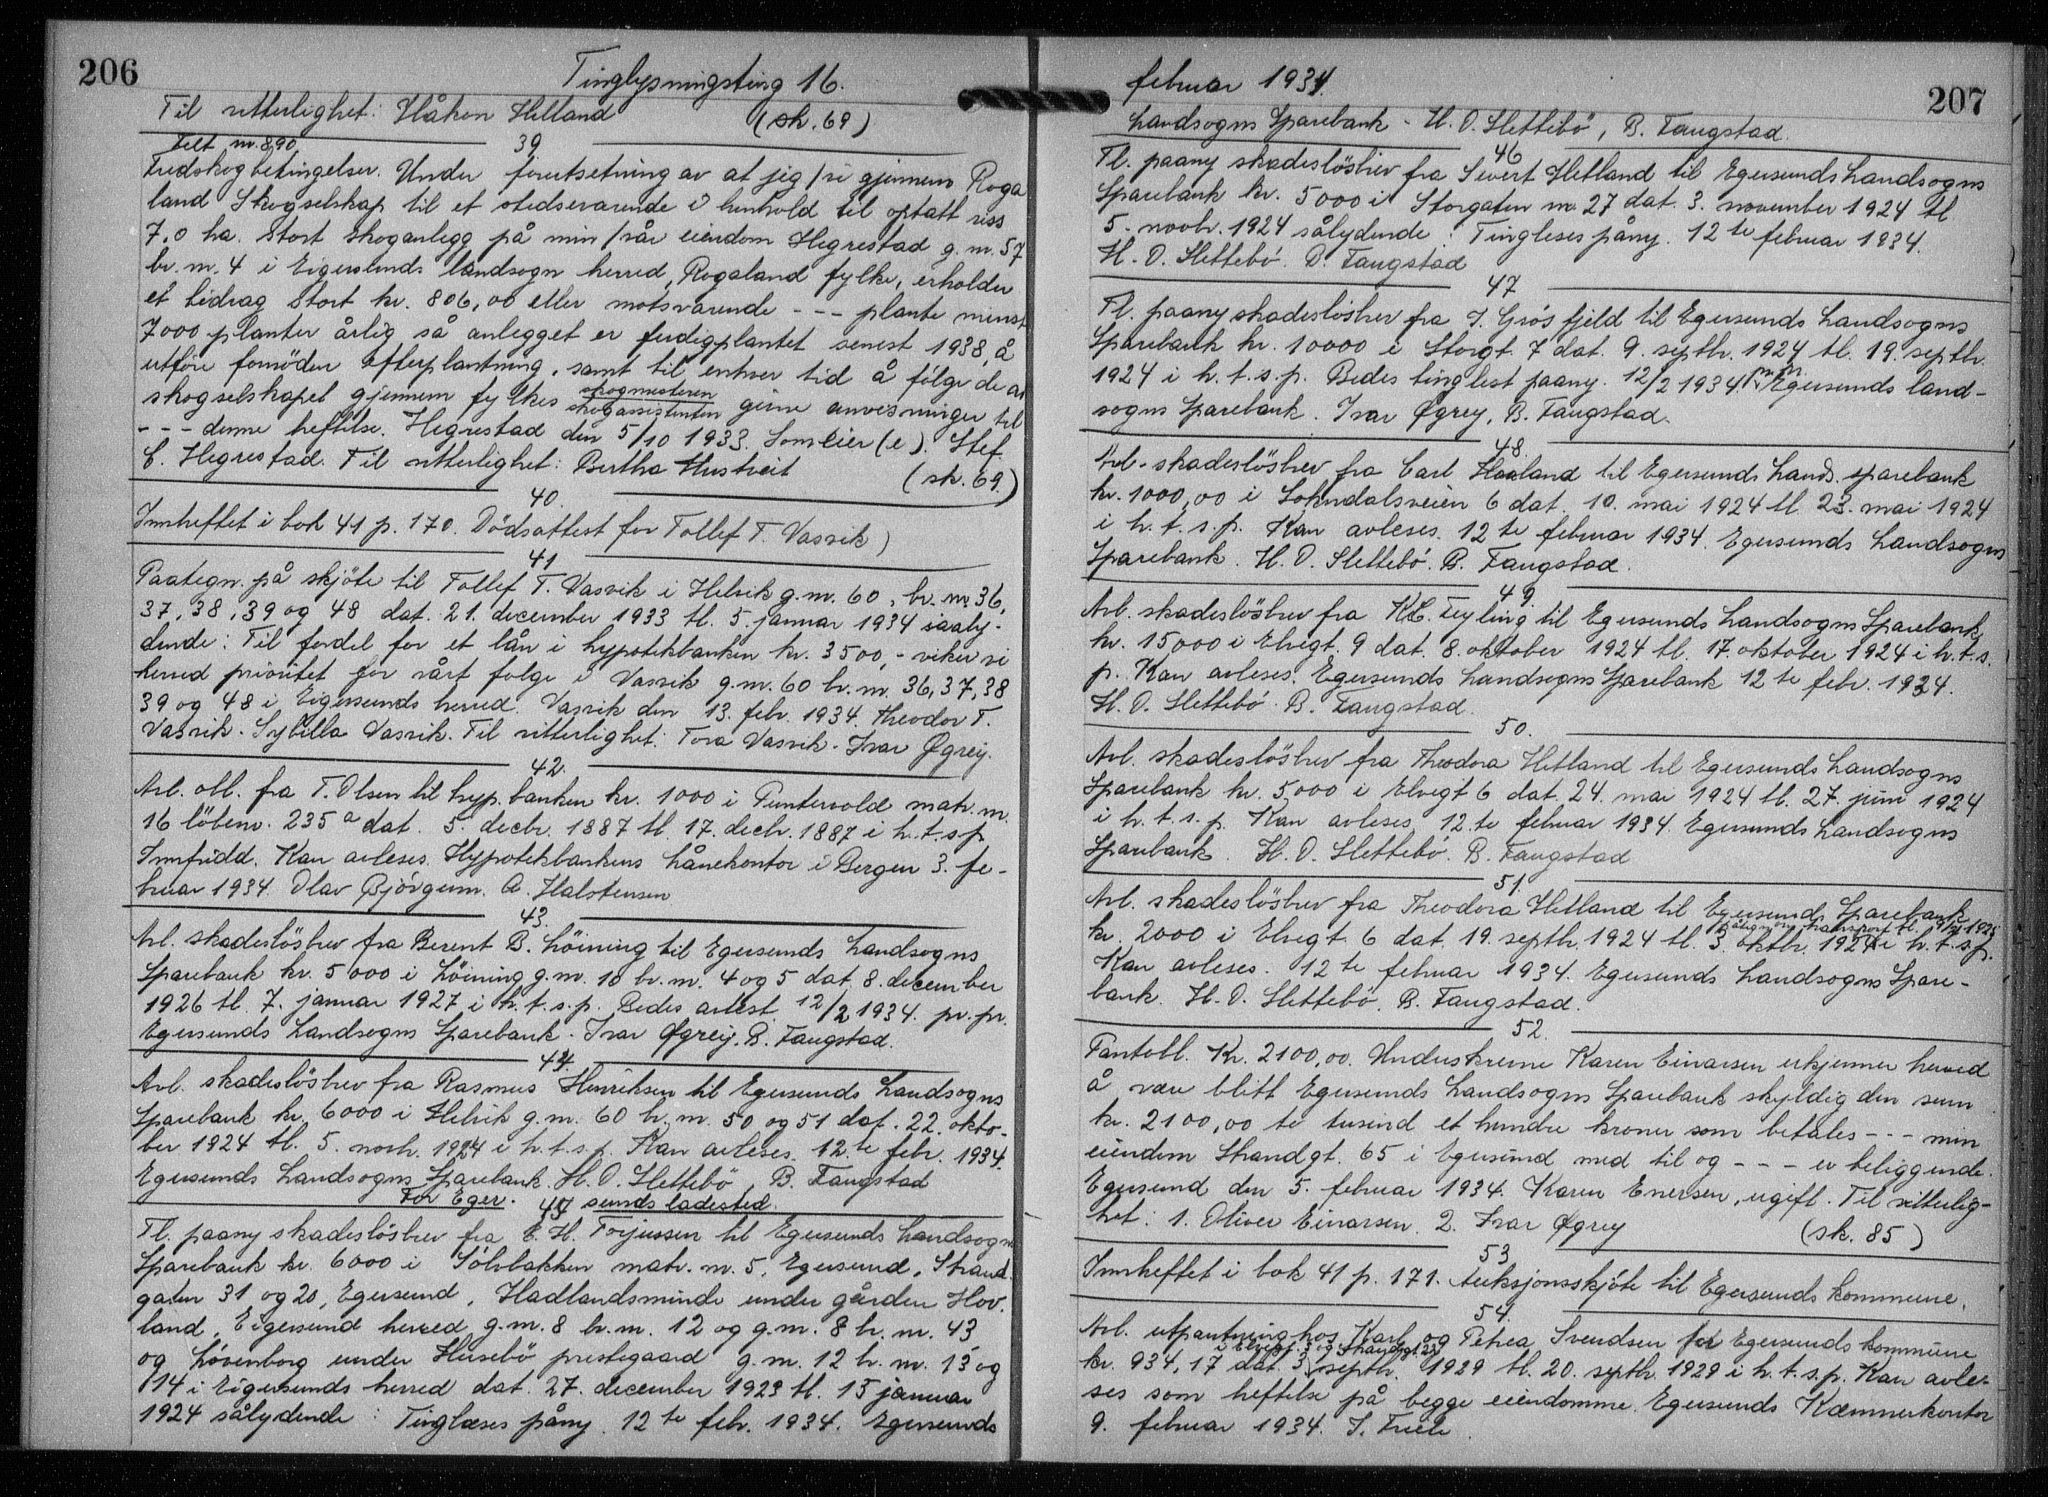 206
Tinglysningsting 16.
Til vitterlighet: Håkon Hetland (sk. 69)
39
Felt nr. 890
Fredskogbetingelser. Under forutsetning av at jeg/vi gjennem Roga
land Skogselskap til et stedsevarende i henhold til optatt riss
7,0 ha. stort skoganlegg på min/vår eiendom Hegrestad g. nr. 57
br. nr. 4 i Eigersunds landsogn herred, Rogaland fylke, erholder
et bidrag stort kr. 806,00 eller motsvarende --- plante minst
7000 planter årlig så anlegget er ferdigplantet senest 1938, å
utföre fornöden efterplantning, samt til enhver tid å fölge de av
skogselskapet gjennem fylkes skogmesteren skogassistenten givne anvisninger til
--- denne heftelse. Hegrestad den 5/10 1933. Som eier(e). Stef.
C. Hegrestad. Til vitterlighet: Bertha Hustveit (sk. 69)
40.
Innheftet i bok 41 p. 170. Dödsattest for Tollef T. Vasvik)
41
Paategn. på skjöte til Tollef T. Vasvik i Helvik g. nr. 60, br. nr. 36,
37, 38, 39 og 48 dat. 21. december 1933 tl. 5. januar 1934 saaly-
dende: Til fordel for et lån i hypotekbanken kr. 3500,- viker vi
herved prioritet for vårt folge i Vasvik g. nr. 60 br. nr. 36, 37, 38
39 og 48 i Eigersunds herred. Vasvik den 13. febr. 1934. Theodor T.
Vasvik. Sybilla Vasvik. Til vitterlighet: Tora Vasvik. Ivar Øgrey.
42.
Avl. obl. fra T. Olsen til hyp. banken kr. 1000 i Puntervold matr. nr.
16 löbenr. 235 a dat. 5. decbr. 1887 tl. 17. decbr. 1887 i h. t. s. p
Innfridd. Kan avleses. Hypotekbankens lånekontor i Bergen 3. fe-
bruar 1934. Olav Bjórgum. A. Halstensen
43.
Avl. skadeslösbrev fra Berent B. Löining til Egersunds Landsogns
Sparebank kr. 5000 i Löining g. nr. 10 br. nr. 4 og 5 dat. 8. december
1926 tl. 7. januar 1927 i h. t. s. p. Bedes avlest. 12/2 1934. pr. pr.
Egersunds Landsogns Sparebank. Ivar Øgrey. B. Taugstad.
44.
Avl. skadeslösbrev fra Rasmus Henriksen til Egersunds Landsogns
Sparebank kr. 6000 i Helvik g. nr. 60 br. nr. 50 og 51 dat. 22. okto-
ber 1924 tl. 5. novb. 1924 i h. t. s. p. Kan avleses. 12.te febr. 1934.
Egersunds Landsogns Sparebank. H. O. Slettebö, B. Taugstad
For Eger- 45 sunds ladested.
Tl. paany skadeslösbrev fra E. H. Torjussen til Egersunds Landsogns
Sparebank kr. 6000 i Sölvbakken matr. nr. 5, Egersund, Strand
gaten 31 og 20, Egersund, Hadlandsminde under gården Hov.
land, Eigersund herred g. nr. 8 br. nr. 12 og g. nr. 8 br. nr. 43
og Lövenborg under Husebö prestegaard g. nr. 12 br. nr. 15 og
14 i Eigersunds herred dat. 27. december 1923 tl. 15 januar
1924 sålydende: Tinglæses påny. 12 te febr. 1934. Egersunds
207
februar 1934.
Landsogns Sparebank - H. O. Slettebö, B. Taugstad.
46
Tl. paany skadeslösbrev fra Sivert Hetland til Egersunds Landsogns
Sparebank kr. 5000 i Storgaten nr. 27 dat. 3. november 1924 tl
5. novbr. 1924 sålydende: Tingleses påny. 12 te februar 1934.
H. O. Slettebö. B. Taugstad
47
Tl. paany skadeslösbrev fra J. Grósfjeld til Egersunds Landsogns
Sparebank kr. 10000 i Storgt. 7 dat. 9. septbr. 1924 tl. 19. septbr.
1924 i h. t. s. p. Bedes tinglest paany. 12/2 1934. pr. pr. Egersunds land-
sogns Sparebank. Ivar Øgrey, B. Taugstad.
48.
Avl. skadeslösbrev fra Carl Haaland til Egersunds Lands. sparebank
kr. 1000,00 i Sokndalsveien 6 dat. 10. mai 1924 tl. 23. mai 1924
i h. t. s. p. Kan avleses. 12 te februar 1934. Egersunds Landsogns
Sparebank. H. O. Slettebö. B. Taugstad.
49.
Avl. skadeslösbrev fra K. C. Feyling til Egersunds Landsogns Sparebank
kr. 15000 i Elvegt. 9 dat. 8. oktober 1924 tl. 17. oktober 1924 i h. t. s.
p. Kan avleses. Egersunds Landsogns Sparebank 12 te febr. 1934.
H. O. Slettebö. B. Taugstad.
50.
Avl. skadeslösbrev fra Theodora Hetland til Egersunds Landsogns
Sparebank kr. 5000 i Elvegt 6 dat. 24. mai 1924 tl. 27. juni 1924
i h. t. s. p. Kan avleses. 12. te februar 1934 Egersunds Landsogns
Sparebank. H. O. Slettebö. B. Taugstad
51.
Avl. skadeslösbrev fra Theodora Hetland til Egersunds Sparebank
kr. 2000 i Elvegt. 6 dat. 19. septbr. 1924 tl. 3. oktbr. 1924 i h. t. s. p.
Kan avleses. 12 te februar 1934. Egersunds Landsogns Spare-
bank. H. O. Slettebö. B. Taugstad.
52.
Pantobl. Kr. 2100,00. Underskrevne Karen Einarsen erkjenner herved
å være blitt Egersunds Landsogns Sparebank skyldig den sum
kr. 2100,00 to tusind et hundre kroner som betales --- min
eiendom Strandgt. 65 i Egersund med til og --- er beliggende.
Egersund den 5. februar 1934. Karen Enersen, ugift. Til vitterlig-
het: 1. Oliver Einarsen. 2. Ivar Øgrey (sk. 85)
53
Innheftet i bok 41 p. 171. Auksjonsskjöte til Egersunds kommune.
54.
Avl. utpantning hos Karl og Petrea Svendsen for Egersunds kommune
i Elvegt. 3 og Strandgt. 28
kr. 934,17 dat. 3. septbr. 1929 tl. 20. septbr. 1929 i h. t. s. p. Kan avle-
ses som heftelse på begge eiendomme. Egersunds Kæmnerkontor
9. februar 1934. J. Friele